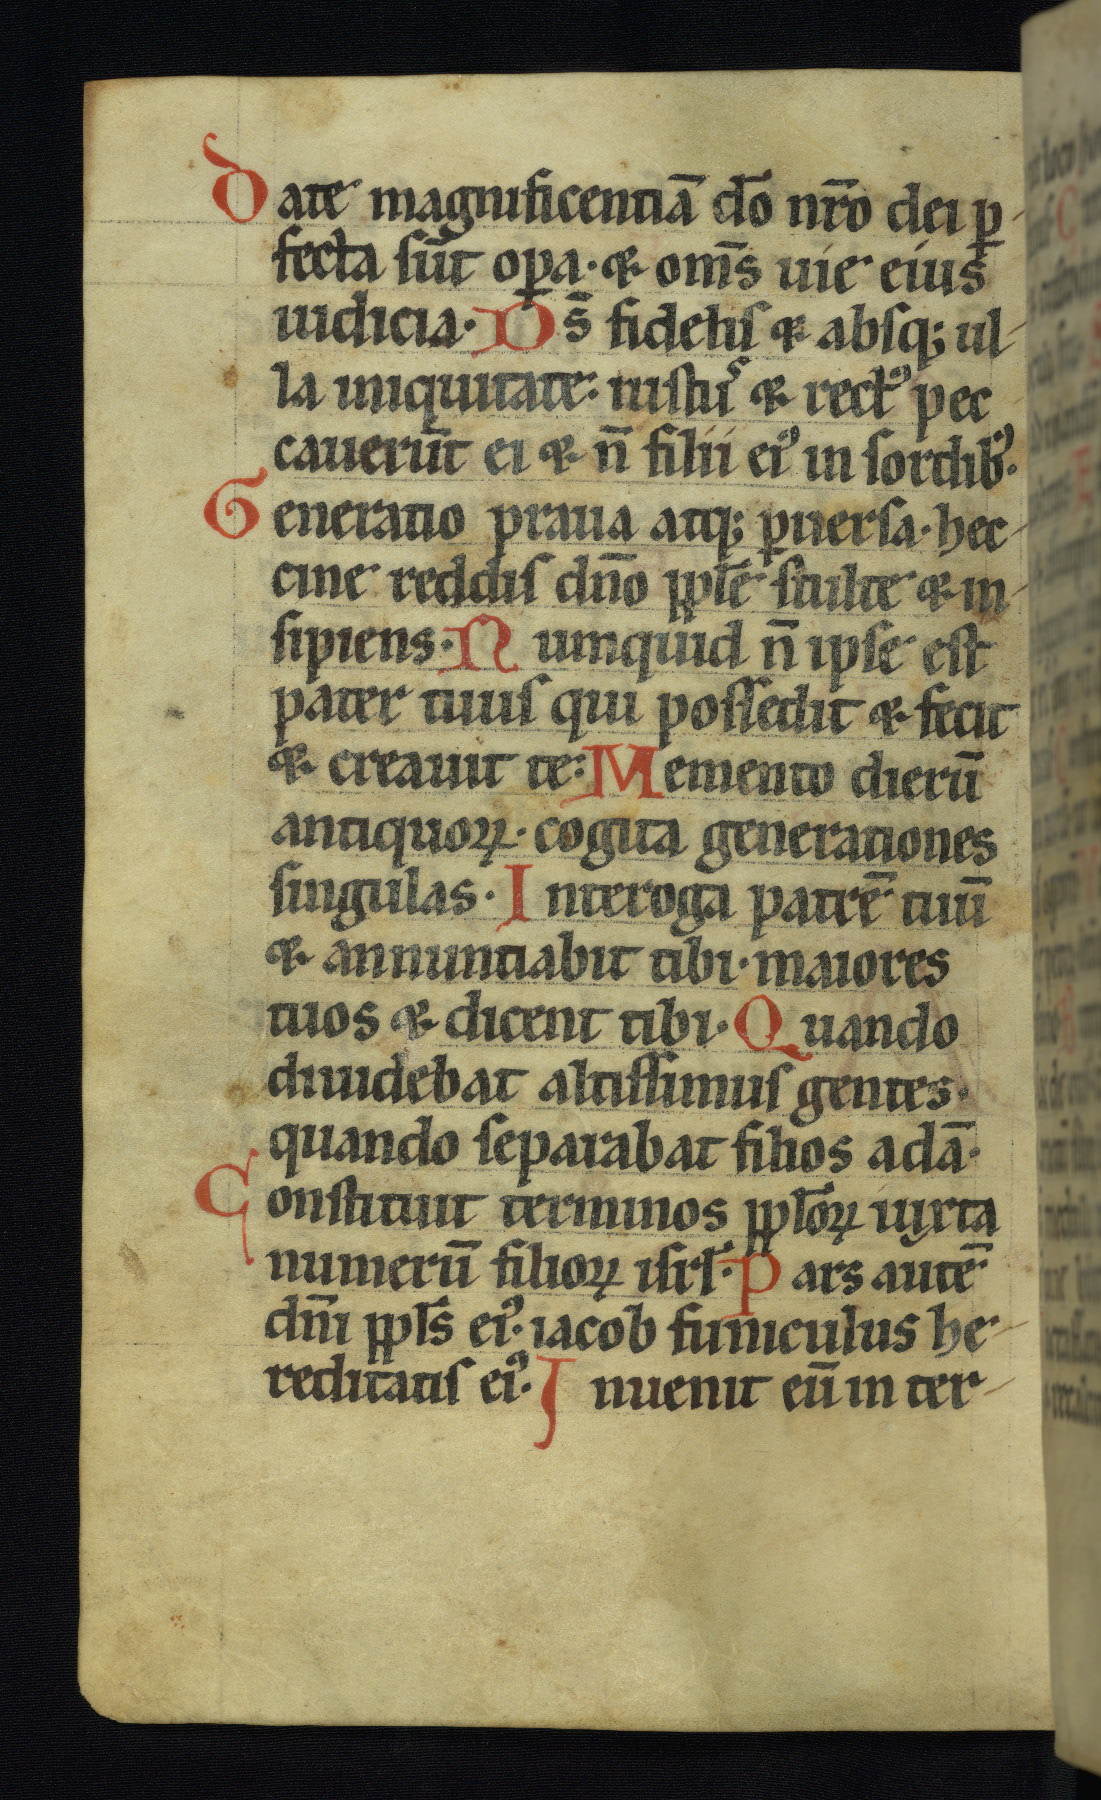 Date magnificentiā dō nr̄o dei ꝑ-
fecta sūt oꝑa· ⁊ om̄s uie eius
iudicia· Ds̄ fidelis ⁊ absq; ul-
la iniquitate: iustus ⁊ rectꝰ pec
cauerūt ei ⁊ n̄ filii eiꝰ in sordibꝰ.
Generatio praua atq; ꝑuersa· hec-
cine reddis dn̄o ppłe stulte ⁊ in-
sipiens· Numquid n̄ ipse est
pater tuus qui possedit ⁊ fecit
⁊ creauit te: Memento dierū
antiquoꝝ· cogita generationes
singulas· Interoga patrē tuū
⁊ annuntiabit tibi· maiores
tuos ⁊ dicent tibi· Quando
diuidebat altissimus gentes·
quando separabat filios adā·
Constituit terminos ppłoꝝ iuxta
numerū filioꝝ isrł· Pars autē
dn̄i ppłs eiꝰ· iacob funiculus he-
reditatis eiꝰ· Inuenit eū in ter-